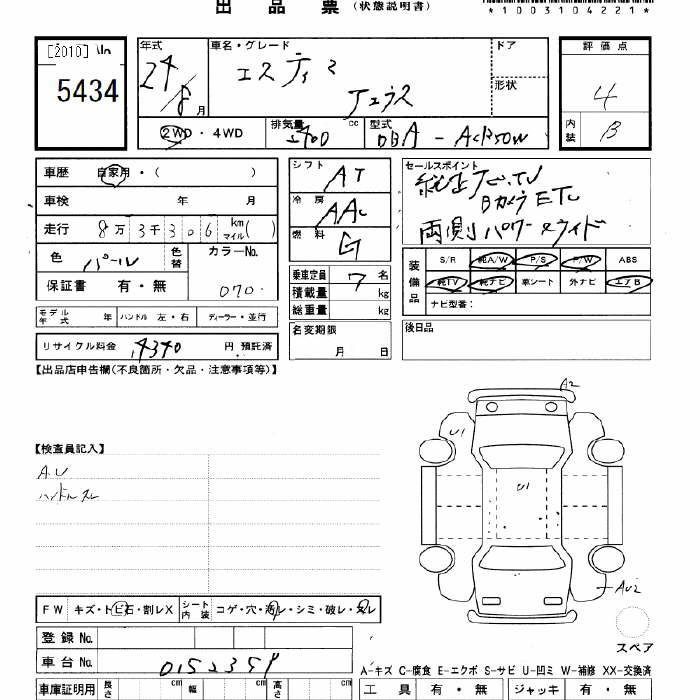 出品票 (状態説明書)
*1003104221*
[2010] 1/10
5434
年式 24/8月
車名・グレード エスティマ アエラス
ドア
形状
評価点 4
内装 B
2WD・4WD
排気量 2400 cc
型式 DBA - ACR50W
車歴 自家用・( )
車検 年 月
走行 8万3千306 km マイル( )
色 パール 色替
カラーNo. 070
保証書 有・無
シフト AT
冷房 AAC
燃料 G
セールスポイント
純正ナビ・TV
Bカメラ ETC
両側パワースライド
乗車定員 7名
積載量 kg
総重量 kg
装備品 S/R 純A/W P/S P/W ABS
純TV 純ナビ 革シート 外ナビ エアB
ナビ型番:
モデル年式 年 ハンドル 左・右 ディーラー・並行
名変期限 月 日
後日品
リサイクル料金 14340 円 預託済
【出品店申告欄(不良箇所・欠品・注意事項等)】
A2
U1
【検査員記入】
A.U
ハンドルスレ
U1
AU2
FW キズ・トビ石・割レX シート内装 コゲ・穴・汚レ・シミ・破レ・スレ
スペア
登録No.
車台No. 0152359
A-キズ C-腐食 E-エクボ S-サビ U-凹ミ W-補修 XX-交換済
車庫証明用 長さ cm 幅 cm 高さ cm
工具 有・無 ジャッキ 有・無